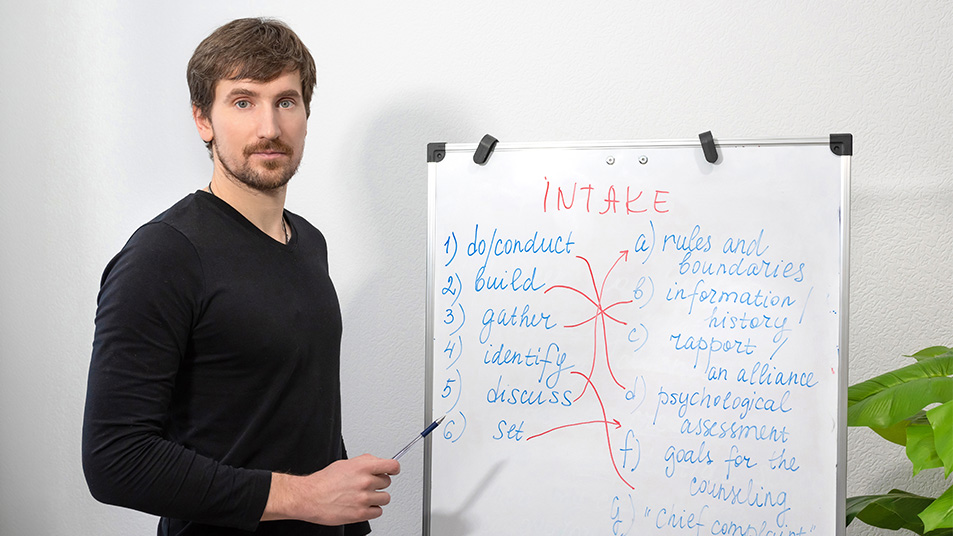 INTAKE
1) do/conduct
2) build
3) gather
4) identify
5) discuss
6) set
a) rules and
boundaries
b) information/
history
c) rapport/
an alliance
d) psychological
assessment
f) goals for the
counseling
g) "chief complaint"